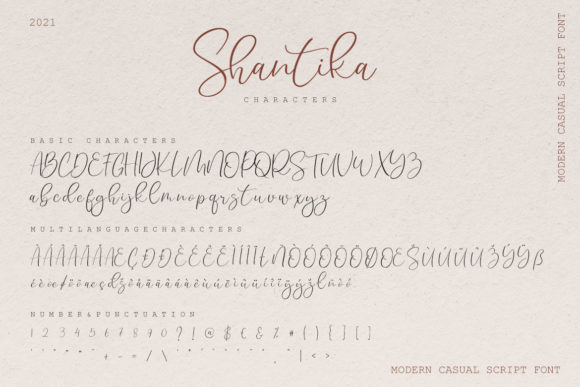 2021
Shantika
CHARACTERS
MODERN CASUAL SCRIPT FONT
BASIC CHARACTERS
ABCDEFGHIJKLMNOPQRSTUVWXYZ
abcdefghijklmnopqrstuvwxyz
MULTILANGUAGECHARACTERS
NUMBER&PUNCTUATION
1 2 3 4 5 6 7 8 9 0 ? ! @ $ € & % * # ( ) { } [ ]
+ - = / \
| < >
MODERN CASUAL SCRIPT FONT